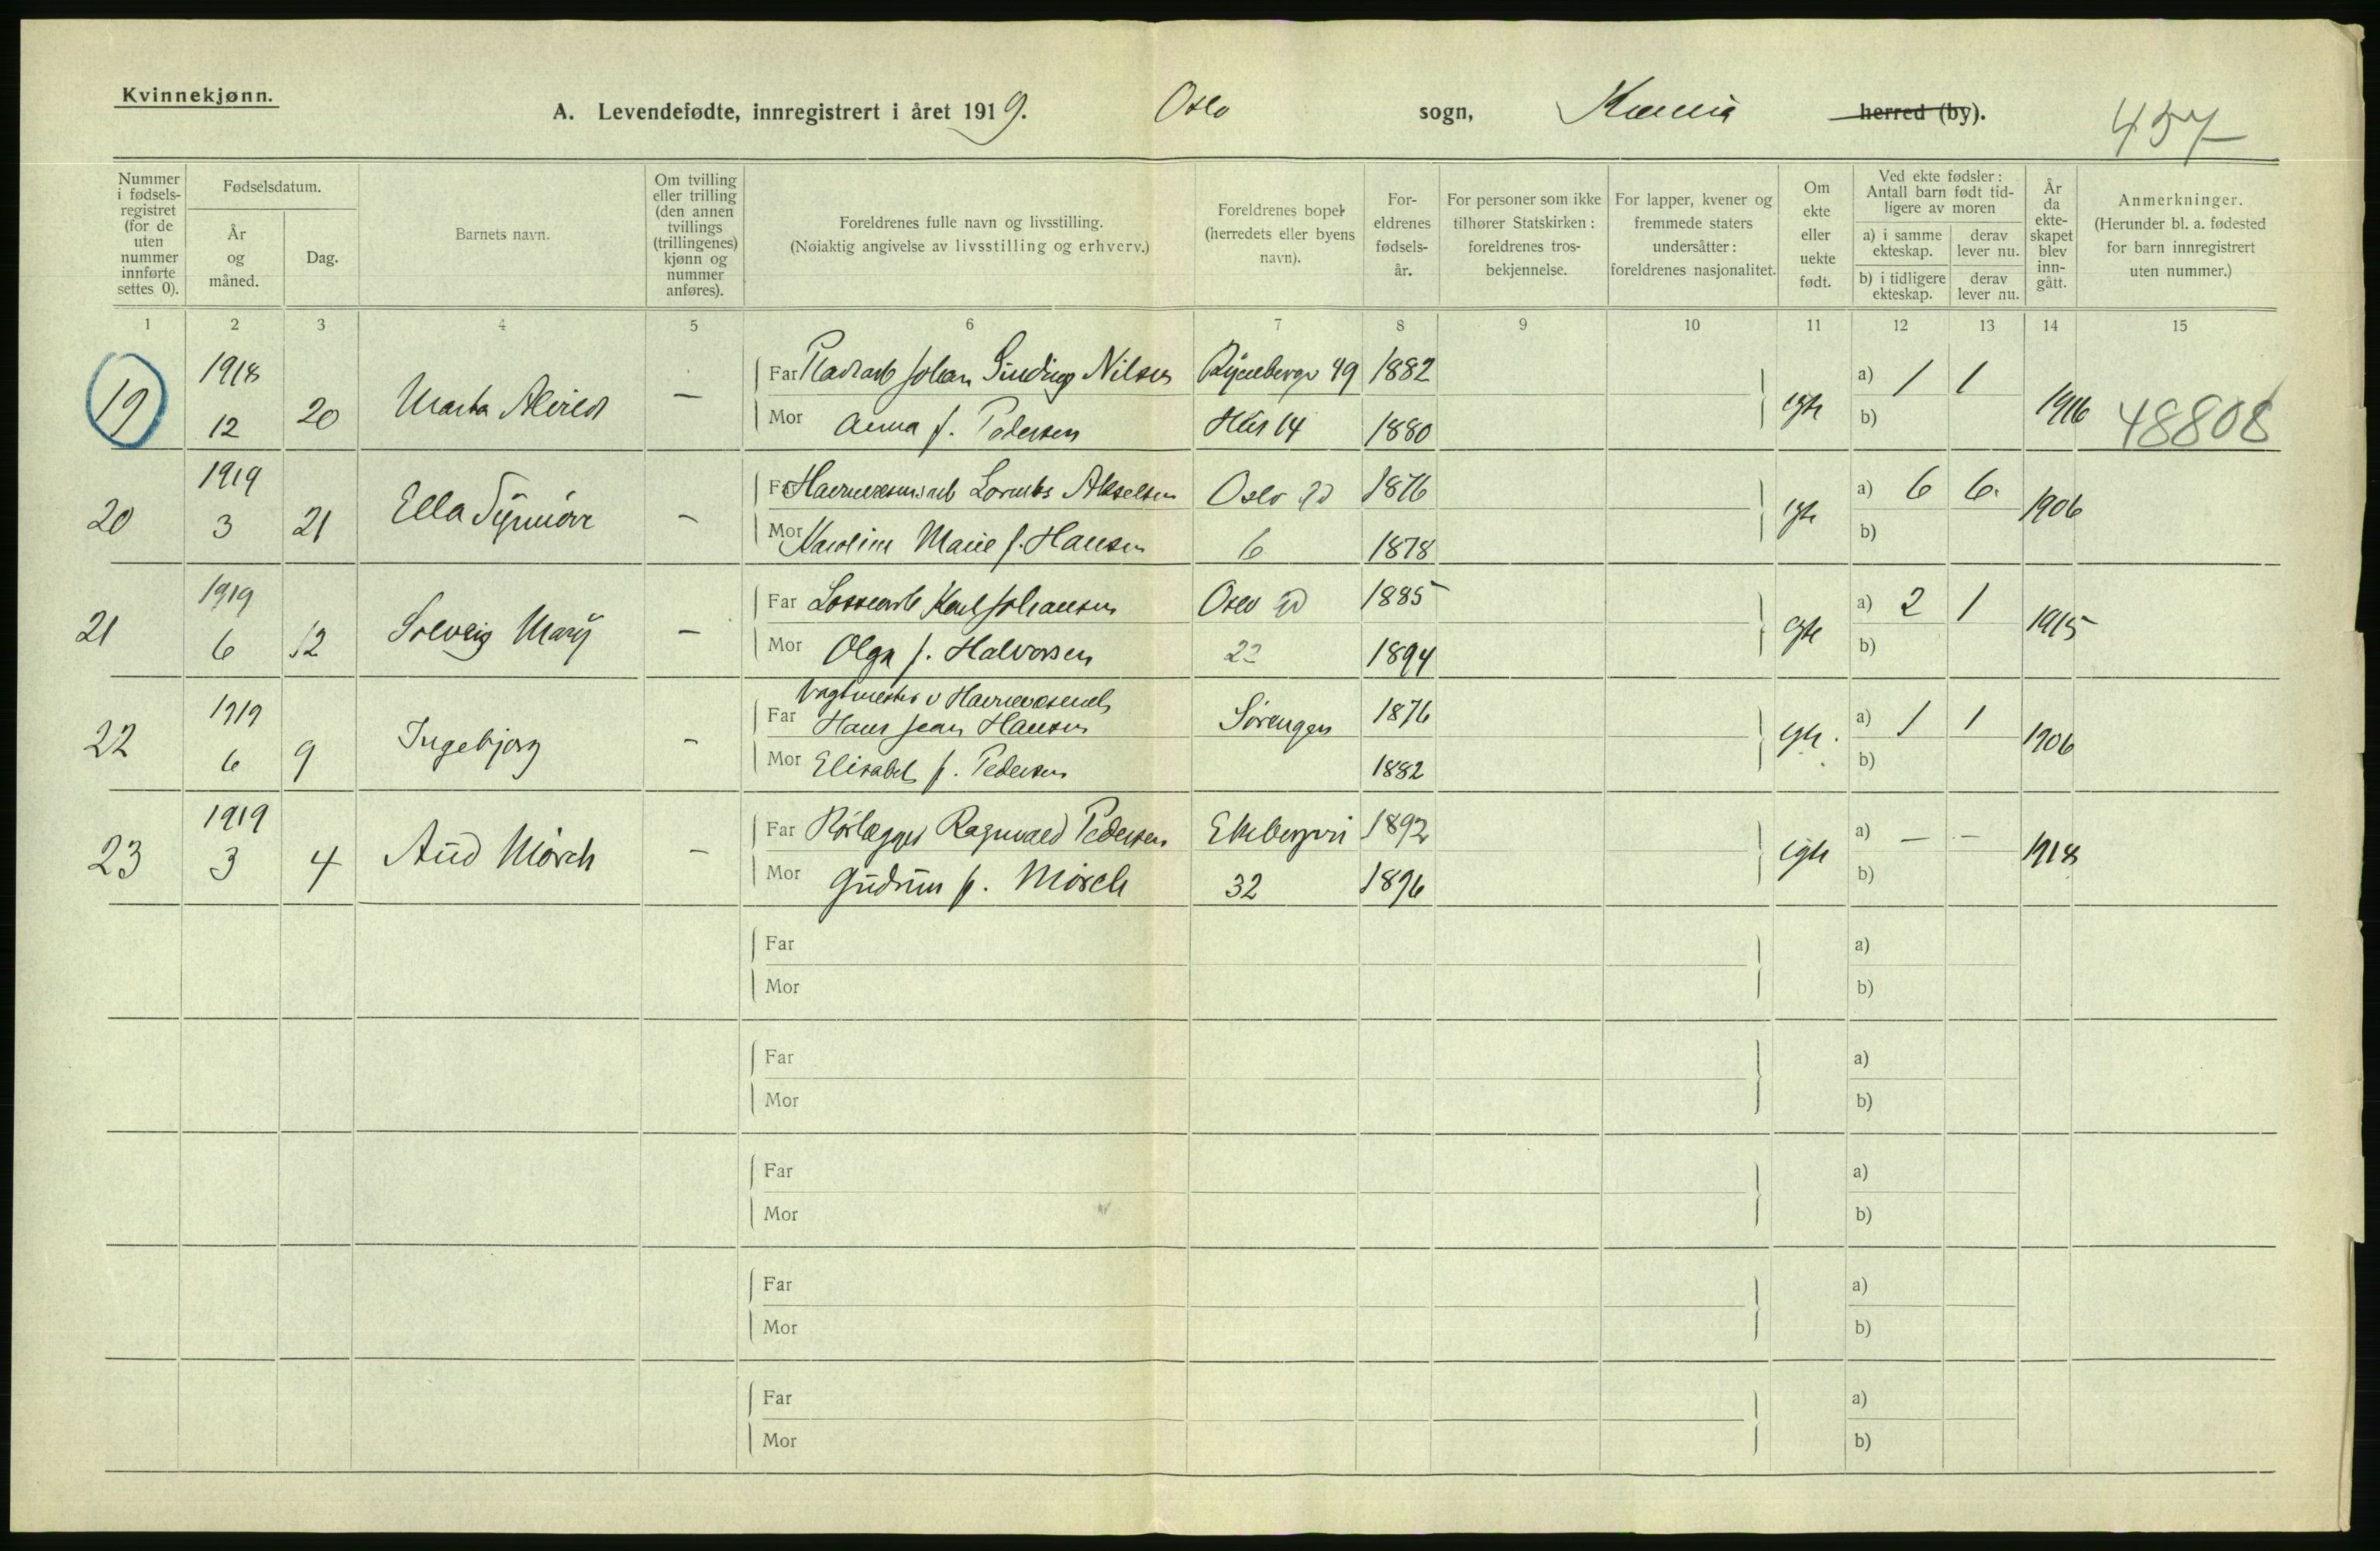 Kvinnekjønn.
A. Levendefødte, innregistrert i året 1919. Oslo sogn, herred (by). 457
Nummer i fødsels-registret (for de uten nummer innførte settes 0).
Fødselsdatum.
År og måned.
Dag.
Barnets navn.
Om tvilling eller trilling (den annen tvillings (trillingenes) kjønn og nummer anføres).
Foreldrenes fulle navn og livsstilling.
(Nøiaktig angivelse av livsstilling og erhverv.)
Foreldrenes bopel (herredets eller byens navn).
For-eldrenes fødsels-år.
For personer som ikke tilhører Statskirken: foreldrenes tros-bekjennelse.
For lapper, kvener og fremmede staters undersåtter: foreldrenes nasjonalitet.
Om ekte eller uekte født.
Ved ekte fødsler: Antall barn født tid-ligere av moren
a) i samme ekteskap. derav lever nu.
b) i tidligere ekteskap. derav lever nu.
År da ekte-skapet blev inn-gått.
Anmerkninger.
(Herunder bl. a. fødested for barn innregistrert uten nummer.)
1 2 3 4 5 6 7 8 9 10 11 12 13 14 15
19 1918 12 20 Marta — egte 1916 48808
Far Johan Sinding Nilsen 49 1882 a) 1 1
Mor Anna f. Pedersen Hus 14 1880 b)
20 1919 3 21 Ella Synnöve — egte 1906
Far Akselsen Oslo gd 1876 a) 6 6
Mor Karoline Marie f. Hansen 6 1878 b)
21 1919 6 12 Solveig Mary — egte 1915
Far Lossearb Karl Johansen Oslo gd 1885 a) 2 1
Mor Olga f. Halvorsen 22 1894 b)
22 1919 6 9 Ingebjørg — egte 1906
Vagtmester v Havnevæsenet
Far Hans Jean Hansen Sørengen 1876 a) 1 1
Mor Elisabet f. Pedersen 1882 b)
23 1919 3 4 Aud Mörch — egte 1918
Far Rørlægger Ragnvald Pedersen Ekebergvei 1892 a) — —
Mor Gudrun f. Mörch 32 1896 b)
Far a)
Mor b)
Far a)
Mor b)
Far a)
Mor b)
Far a)
Mor b)
Far a)
Mor b)